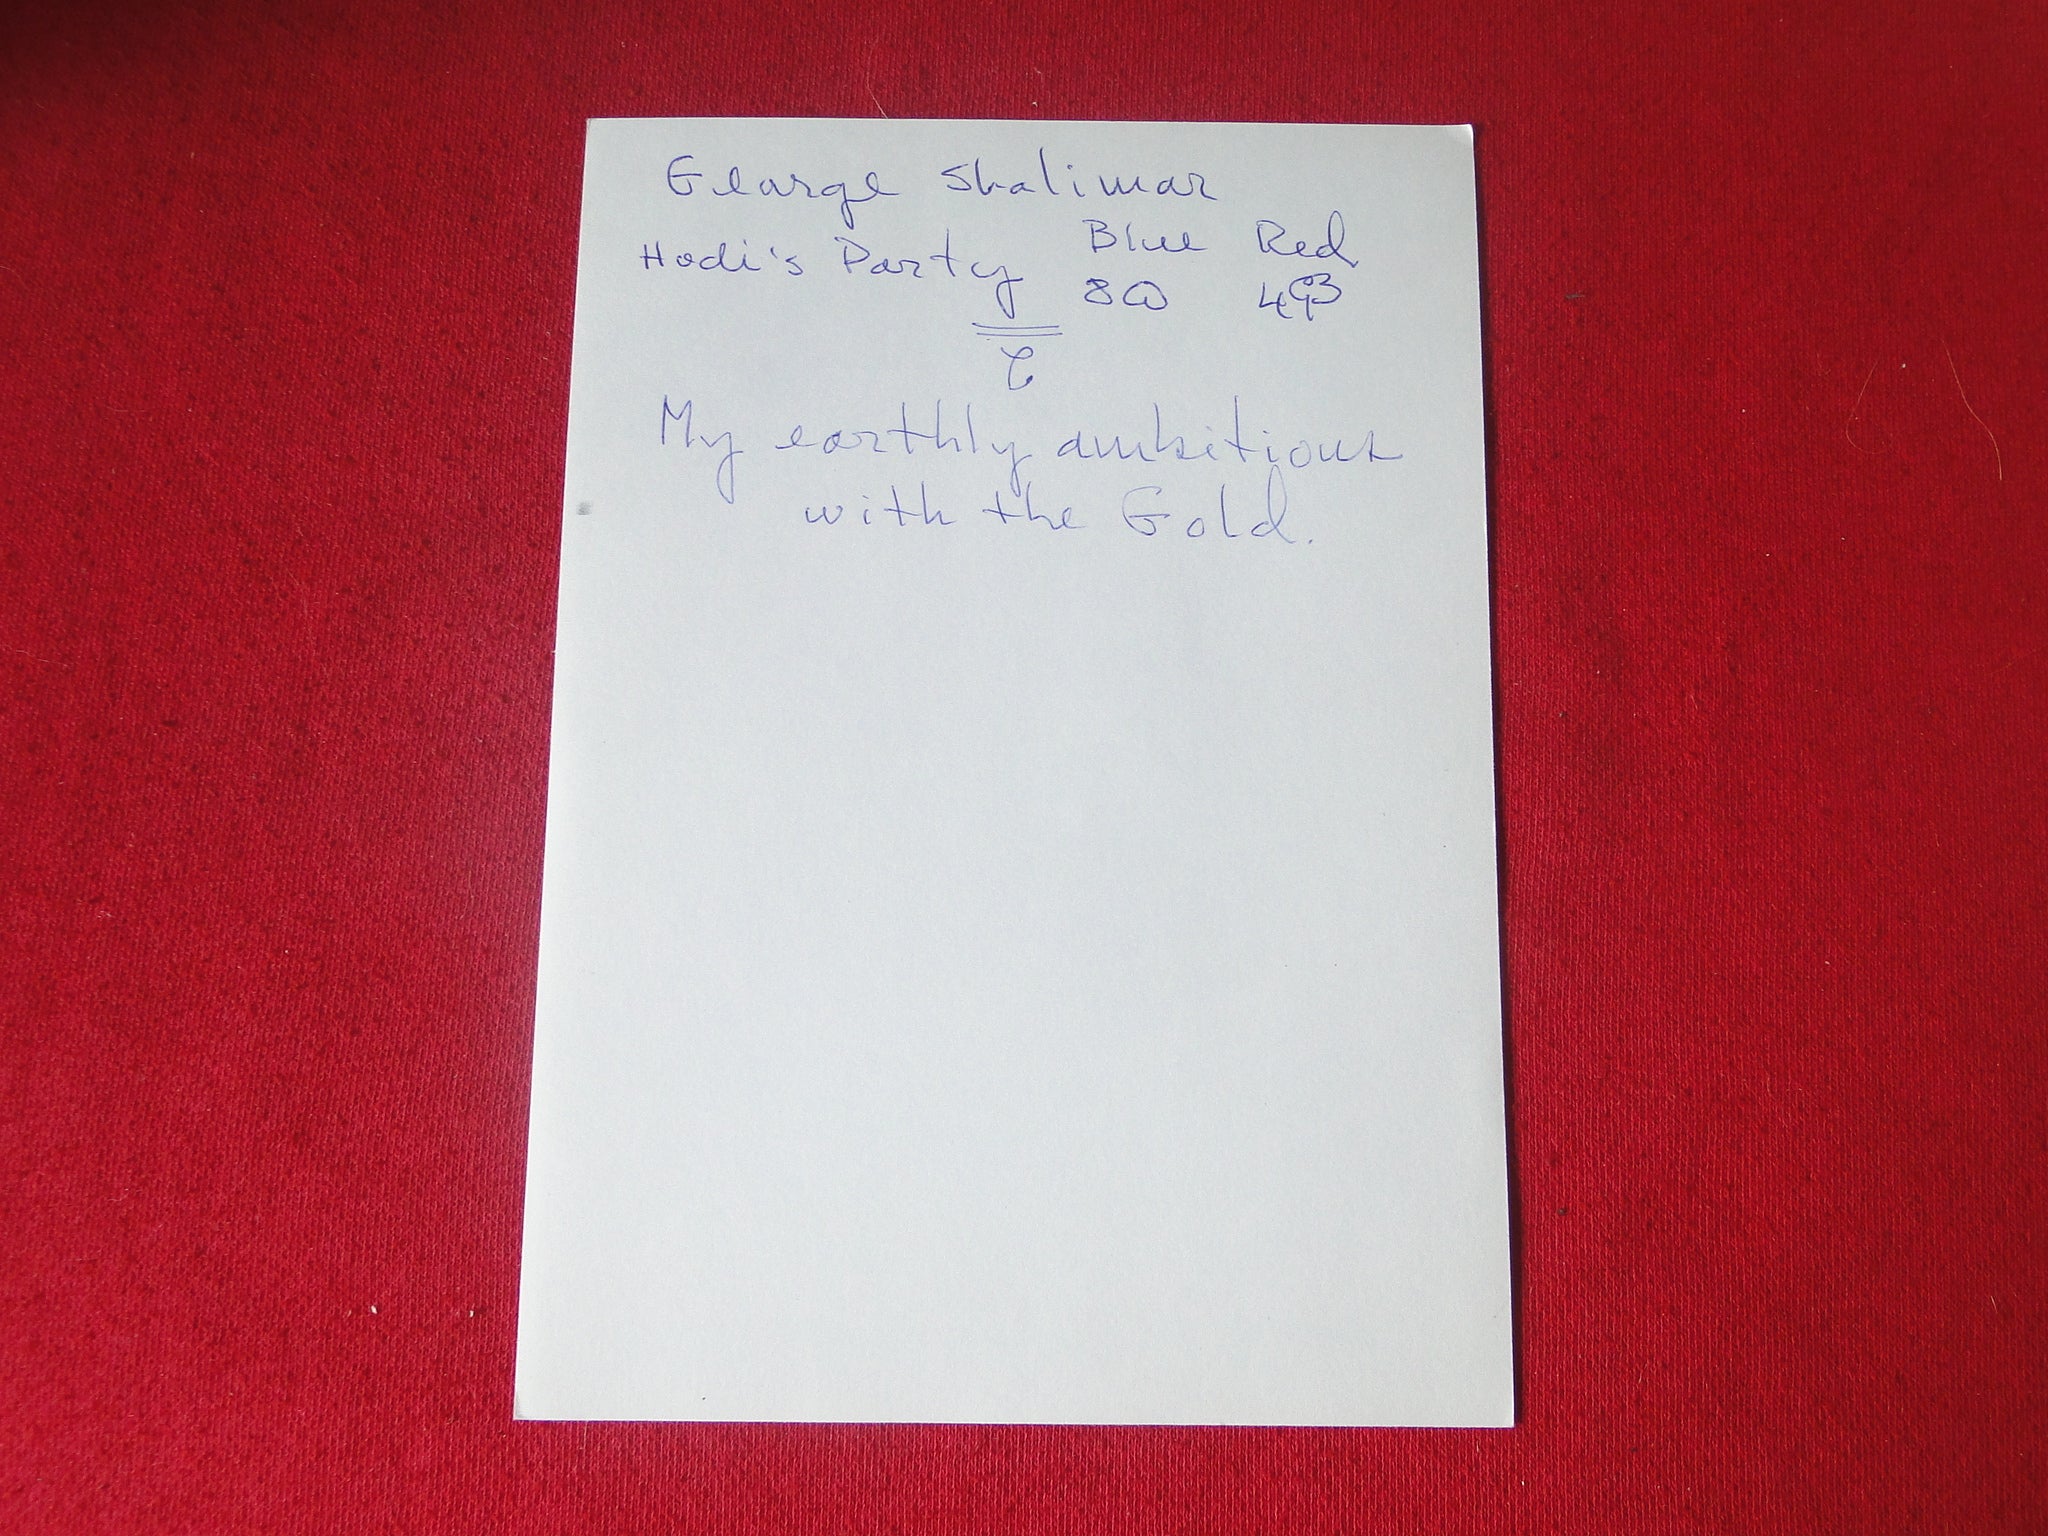 George Shalimar
Hodi's Party
Blue Red
80 493
My earthly ambitions
with the Gold.